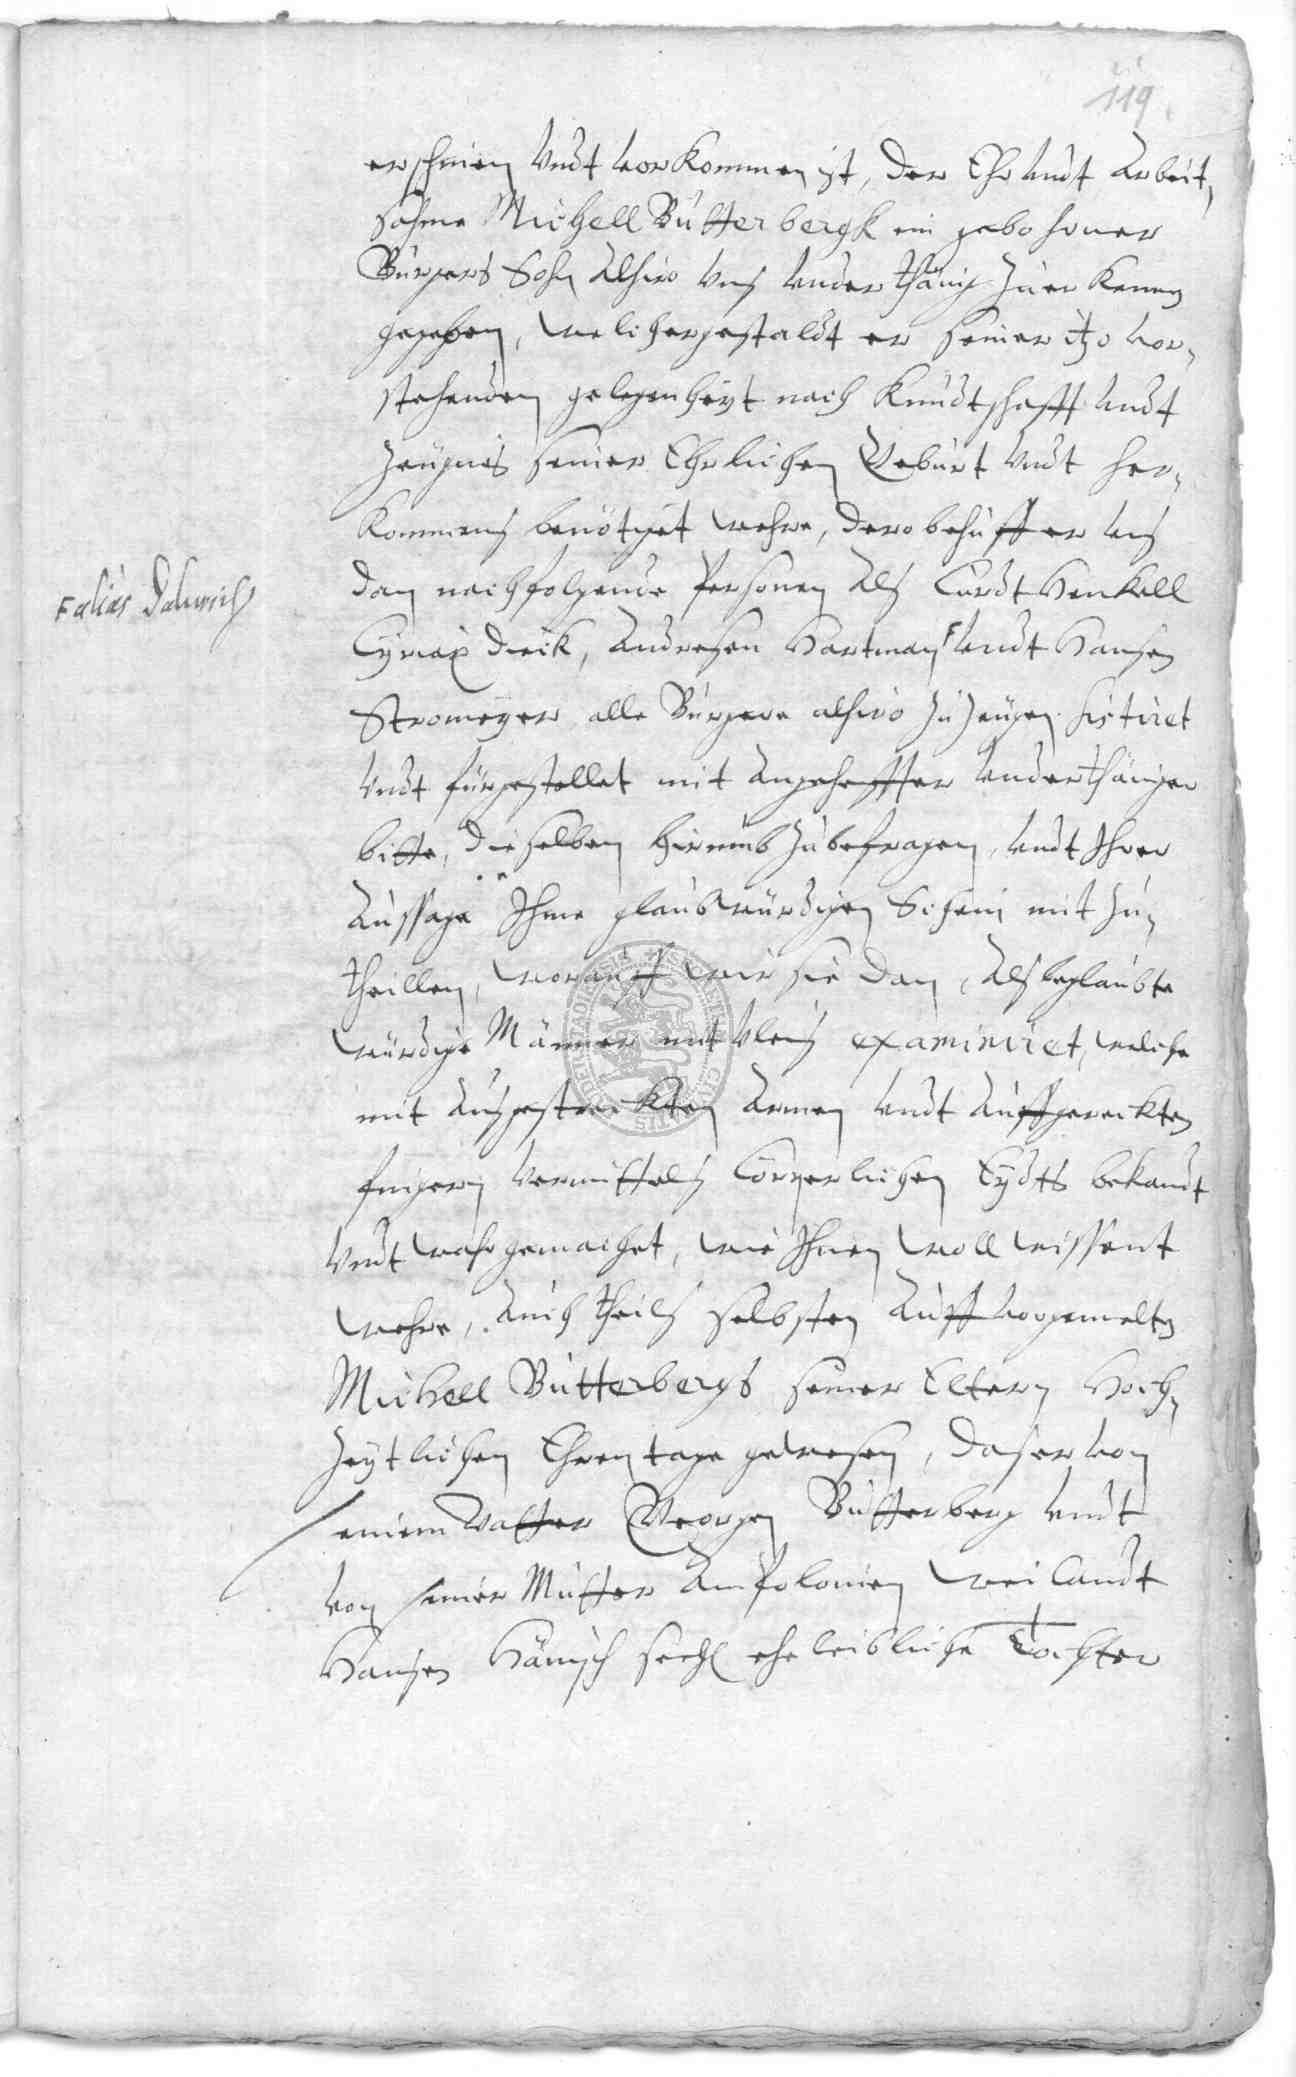 119
erschienen Undt vorkommen ist, der Ehr undt Arbeit,
sahme Michell Butterbergk ein gebohrner
Bürgers Sohn Alhiro Uns underthänig Zuerkennen
gegeben, welichergestaldt er seiner itzo vor,
stehenden gelegenheyt nach Kundtschafft undt
Zeügnis seiner Ehrlichen Geburt Undt her,
kommens benötiget wehre, derobehuff er uns
dan nachfolgende Personen Als Curdt Henkell
Cyriax Dieck, Andresen Hartman F undt Hansen
F alias Dalwich
Stromeyer alle Bürgere alhiro zu Zeugen sistiret
Undt fürgestellet mit Angeheffter underthäniger
bitte, dieselben hierumb zubefragen, undt Ihrer
Aussage Ihme glaubwürdigen Schein mit zu,
theillen, worauff wir sie dan, Als beglaubte
würdige Männer mit Vleis examiniret, weliche
mit Ausgestreckten Armen undt Auffgereckten
fingern vermittels Cörperlichen Eydts bekandt
Undt wahrgemachet, wie Ihnen woll wissent
wehre, Auch theils selbsten Auff vorgemelten
Michell Butterbergs seiner Eltern Hoch,
Zeytlichen Ehrentage gewesen, das er von
seinem Vatter Georgen Butterberg undt
von seiner Mutter Ampolonien weilandt
Hansen Hänisch seehl eheleibliche Tochter